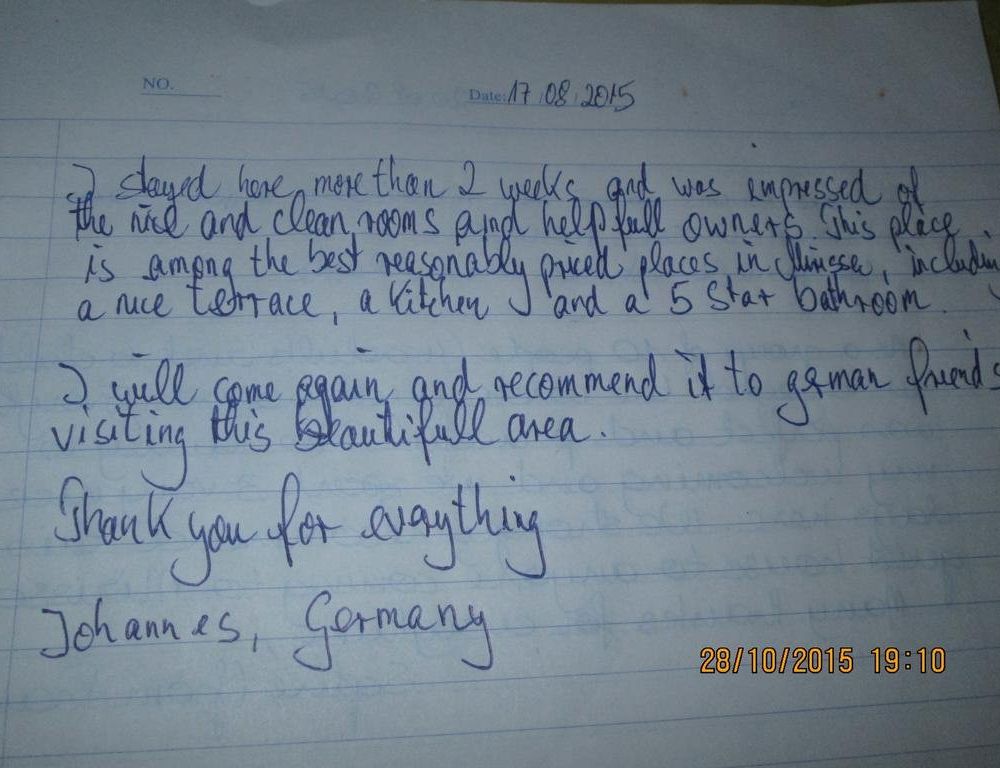 NO.
Date: 17 08 2015
I stayed here more than 2 weeks and was impressed of
the nice and clean rooms and helpfull owners. This place
is among the best reasonably priced places in Mirissa, includin
a nice terrace, a kitchen and a 5 star bathroom.
I will come again and recommend it to german friends
visiting this beautifull area.
Thank you for everything
Johannes, Germany
28/10/2015 19:10